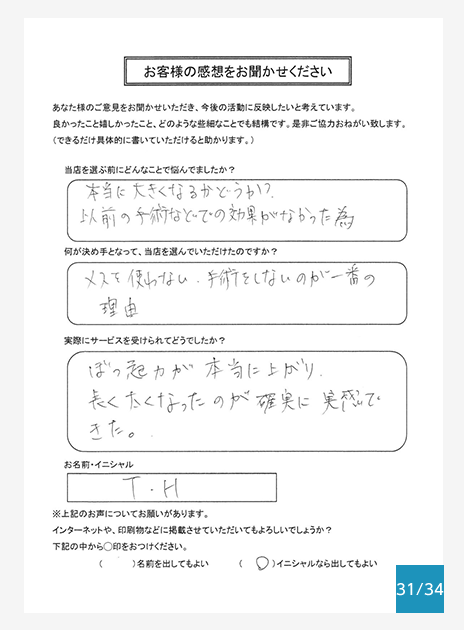 お客様の感想をお聞かせください
あなた様のご意見をお聞かせいただき、今後の活動に反映したいと考えています。
良かったこと嬉しかったこと、どのような些細なことでも結構です。是非ご協力おねがい致します。
（できるだけ具体的に書いていただけると助かります。）
当店を選ぶ前にどんなことで悩んでましたか？
本当に大きくなるかどうか？
以前の手術などでの効果がなかった為
何が決め手となって、当店を選んでいただけたのですか？
メスを使わない、手術をしないのが一番の
理由
実際にサービスを受けられてどうでしたか？
ぼっ起力が本当に上がり、
長く太くなったのが確実に実感で
きた。
お名前・イニシャル
T・H
※上記のお声についてお願いがあります。
インターネットや、印刷物などに掲載させていただいてもよろしいでしょうか？
下記の中から〇印をおつけください。
（　　）名前を出してもよい　　（ 〇 ）イニシャルなら出してもよい
31/34